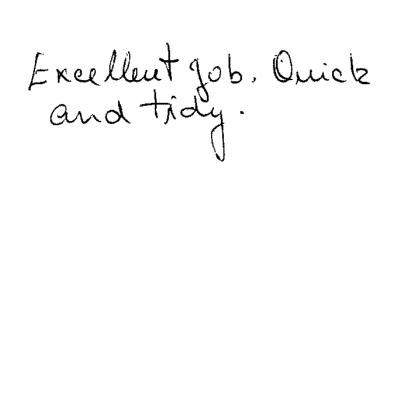 Excellent job. Quick
and tidy.